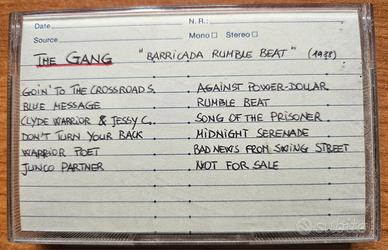 Date N.R.:
Source Mono Stereo
THE GANG "BARRICADA RUMBLE BEAT" (1988)
GOIN' TO THE CROSSROADS AGAINST POWER-DOLLAR
BLUE MESSAGE RUMBLE BEAT
CLYDE WARRIOR & JESSY C. SONG OF THE PRISONER
DON'T TURN YOUR BACK MIDNIGHT SERENADE
WARRIOR POET BAD NEWS FROM SWING STREET
JUNCO PARTNER NOT FOR SALE
subito